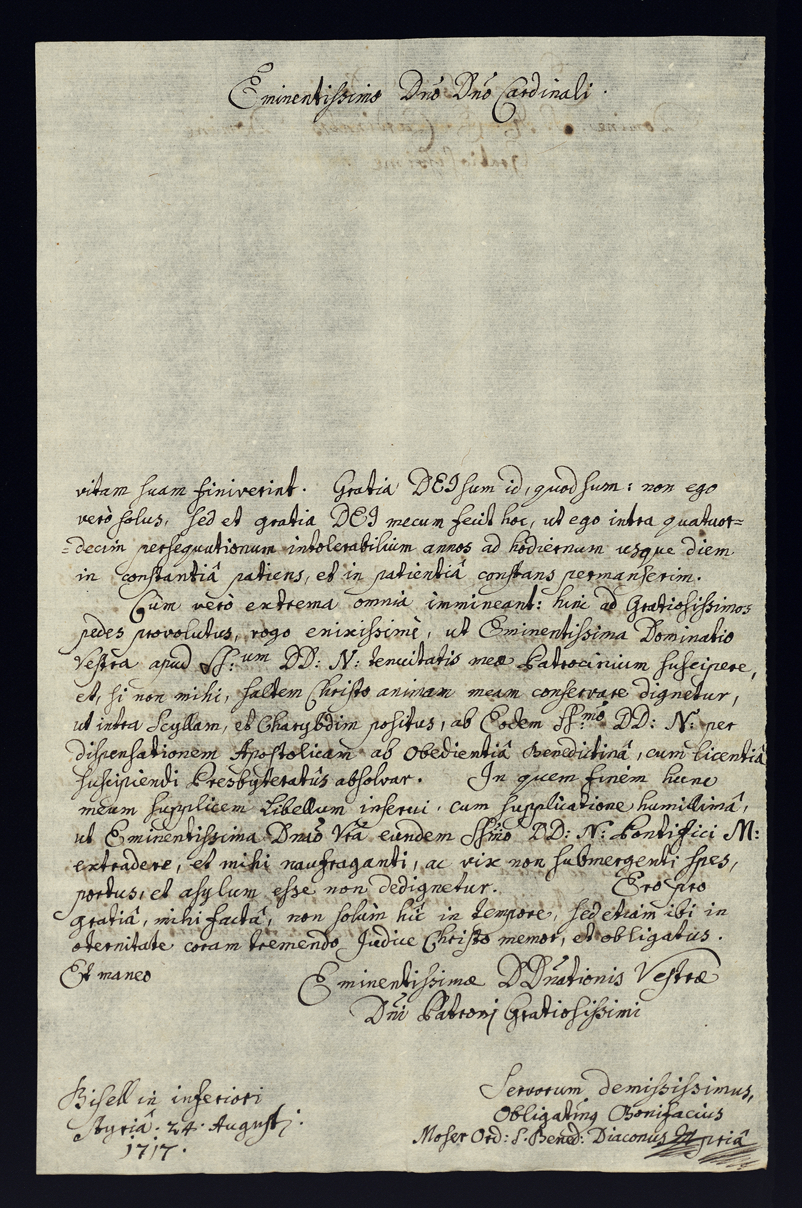 Eminentissimo Dno Dno Cardinali.
vitam suam finiverint. Gratia DEI sum id, quod sum: non ego
verò solus, sed et gratia DEI mecum fecit hoc, ut ego intra quatuor=
=decim persequutionum intolerabilium annos ad hodiernum usque diem
in constantiâ patiens, et in patientiâ constans permanserim.
Cùm verò extrema omnia immineant: hinc ad Gratiosissimos
pedes provolutus, rogo enixissimè, ut Eminentissima Dominatio
Vestra apud SS:um DD: N: tenuitatis meæ Patrocinium suscipere,
et, si non mihi, saltem Christo animam meam conservare dignetur,
ut intra Scyllam, et Charybdim positus, ab Eodem SS:mô DD: N: per
dispensationem Apostolicam ab Obedientiâ Benedictinâ, cum licentiâ
suscipiendi Presbyteratûs absolvar. In quem finem hunc
meum supplicem Libellum inserui cum supplicatione humillimâ,
ut Eminentissima Dnaõ Vrã eundem SSmõ DD: N: Pontifici M:
extradere, et mihi naufraganti, ac vix non submergenti spes,
portus, et asylum esse non dedignetur. Ero pro
gratiâ, mihi factâ, non solùm hîc in tempore, sed etiam ibi in
æternitate coram tremendo Judice Christo memor, et obligatus.
Et maneo
Eminentissimæ DDnãtionis Vestræ
Dñi Patronj Gratiosissimi
Servorum demississimus,
Obligating Bonifacius
Moser Ord: S. Bened: Diaconus Mpriâ
Bisell in inferiori
Styriâ. 24. Augusti.
1717.